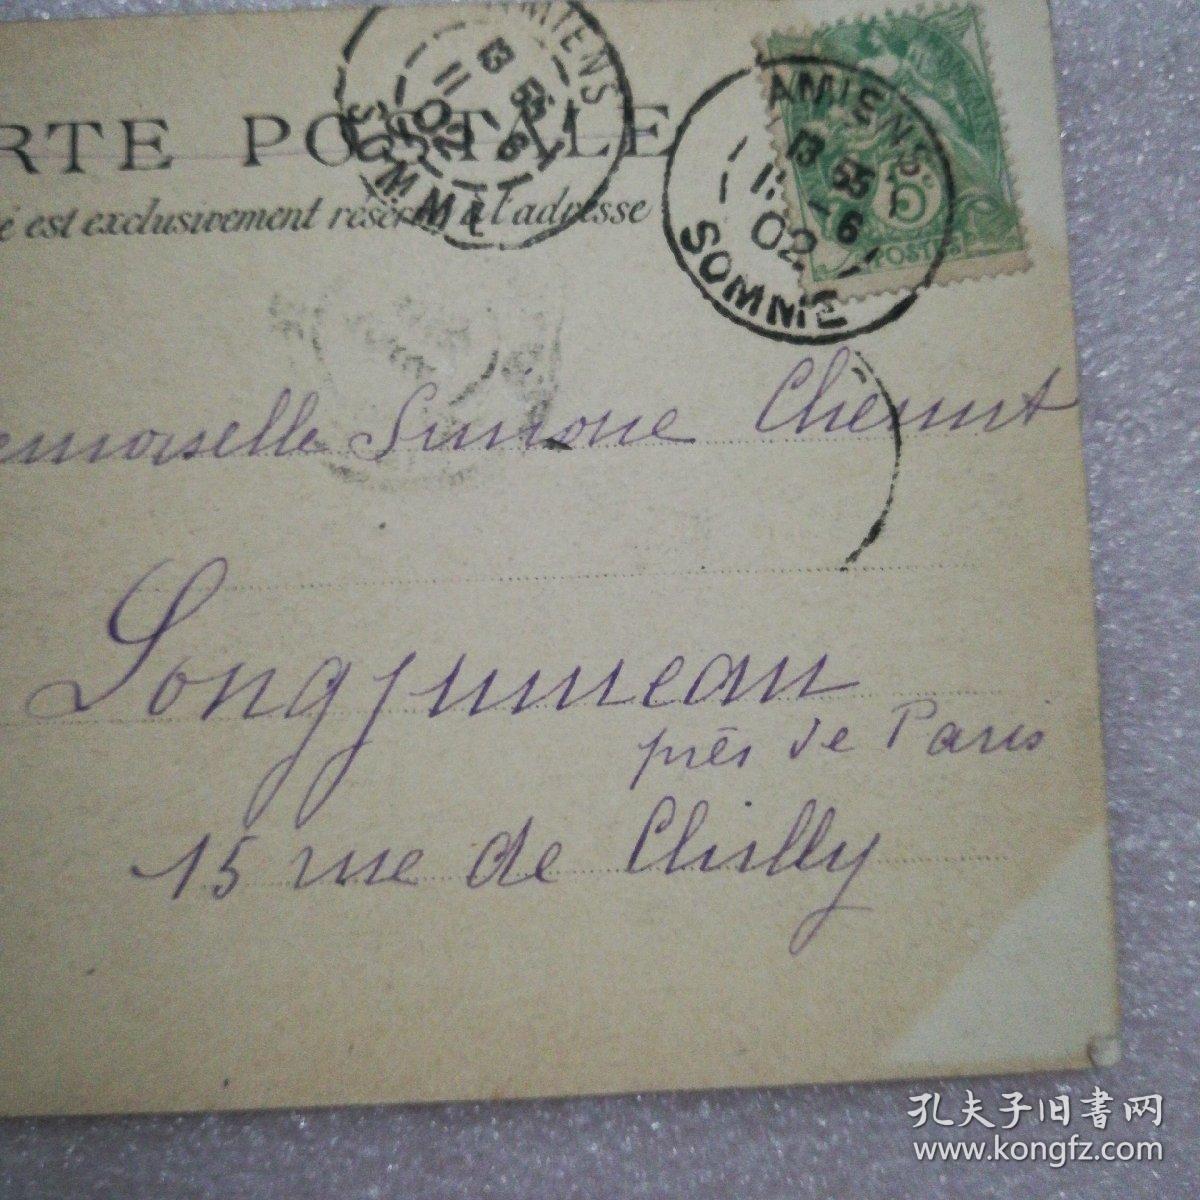 RTE POSTALE
é est exclusivement réservé à l'adresse
AMIENS
13 55
11 6
02
SOMME
AMIENS
13 55
11 - 6
02
SOMME
5c
POSTES
emoiselle Simone
Longjumeau
près de Paris
15 rue de Chilly
孔夫子旧書网
www.kongfz.com